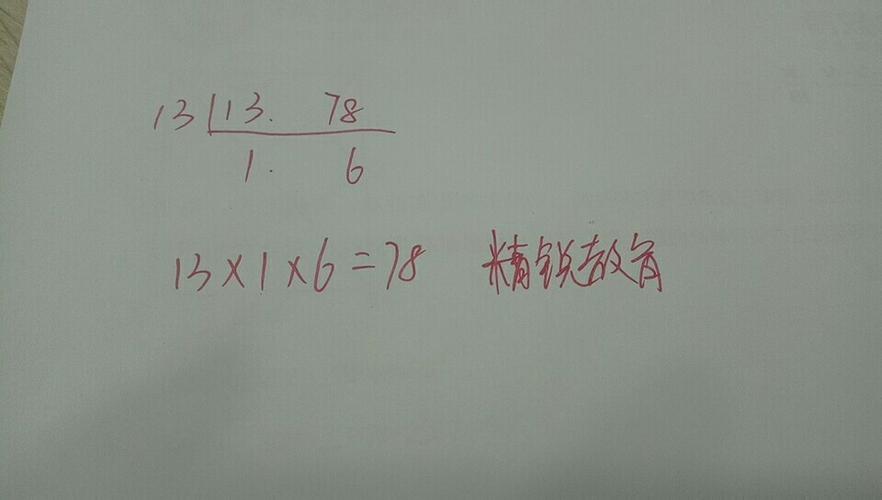 13 13. 78
1. 6
13×1×6=78 精锐教育